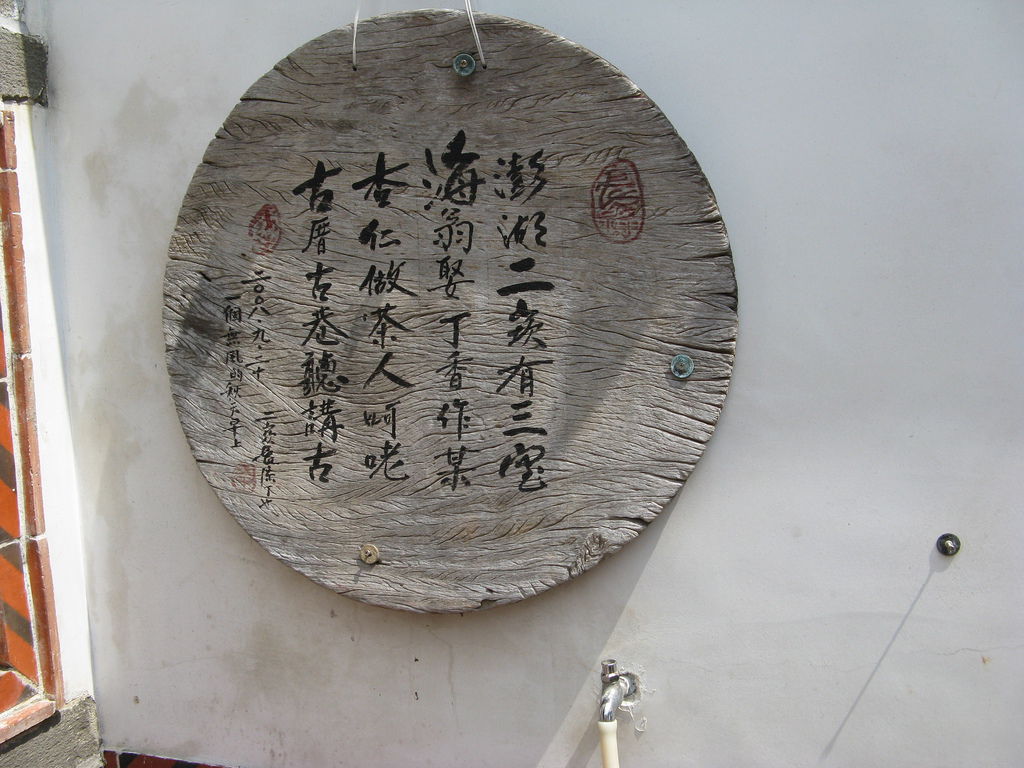 澎湖二崁有三宝
海翁娶丁香作某
杏仁做茶人呵咾
古厝古巷聽講古
二〇〇八.九.二十
一個無風的秋天早上